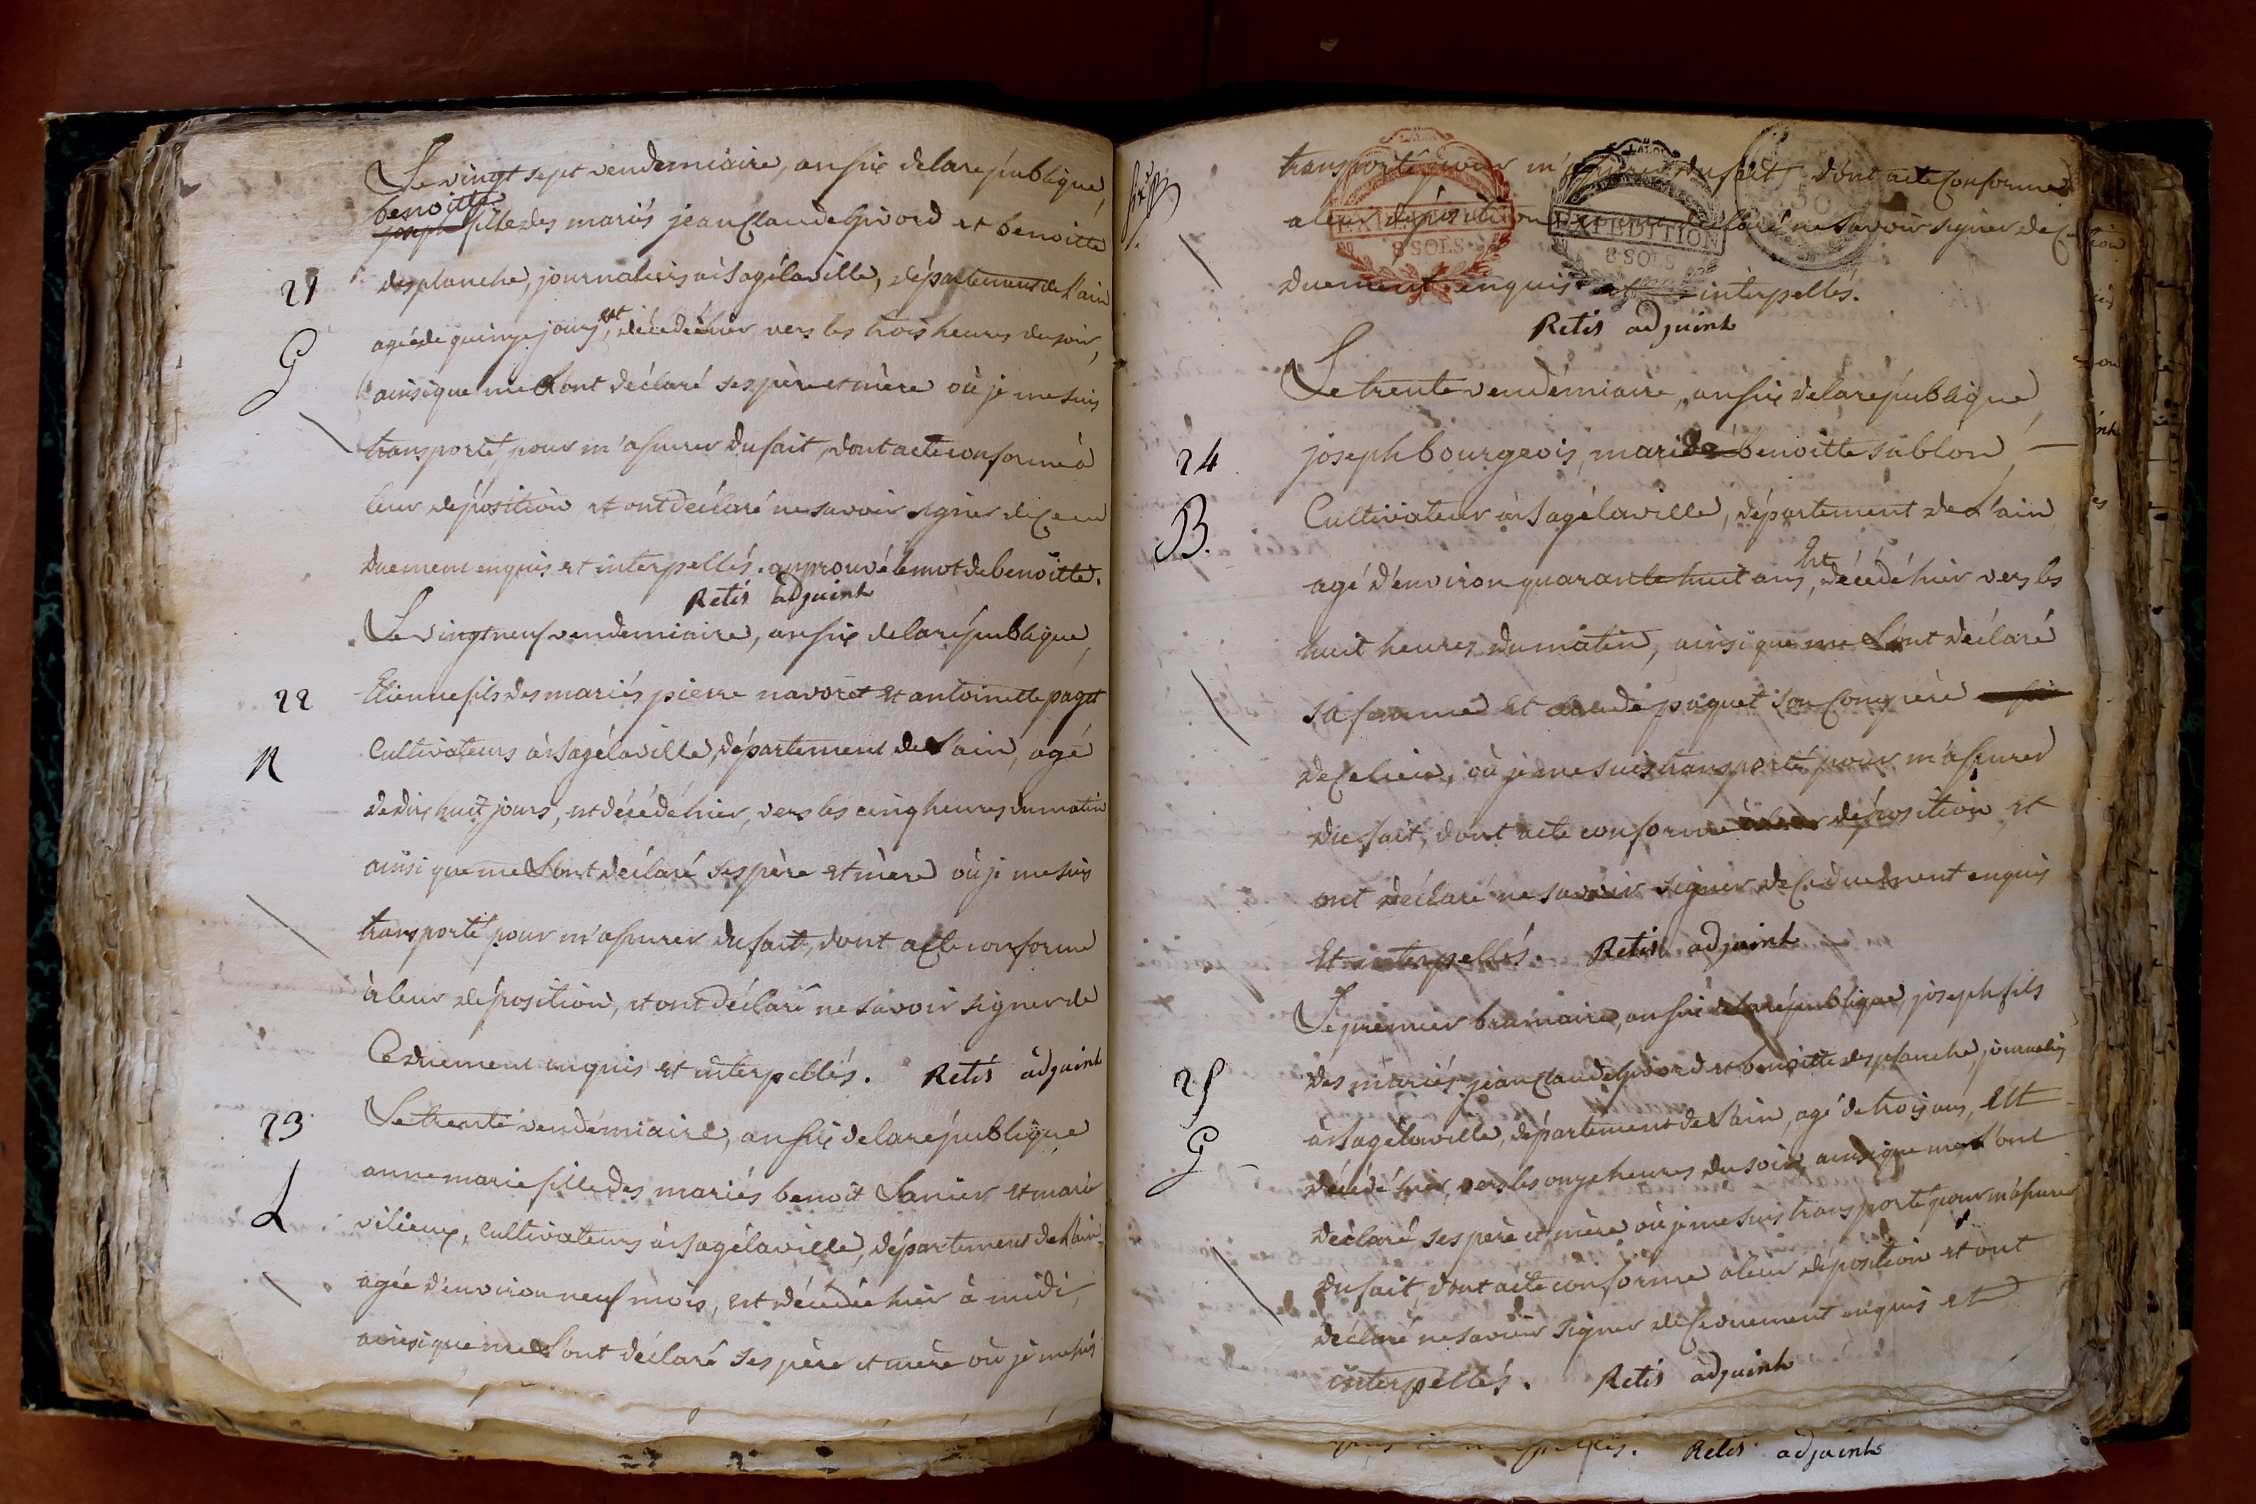 Le vingt sept vendemiaire, an six de la république,
benoitte
joseph fille des mariés jean Claude Givord et benoitte
21 desplanche, journaliers à Lagélaville, département de l'ain
agée de quinze jours, est décédé hier vers les trois heures du soir,
G
ainsi que me L'ont déclaré ses père et mère où je me suis
transporté, pour m'assurer du fait, dont acte conforme à
leur déposition et ont déclaré ne savoir signer de Ce
duement enquis et interpellés. approuvé le mot de benoitte.
Retis adjoint
Le vingt neuf vendemiaire, an six de la république,
22 Etienne fils des mariés pierre navoret et antoinette paget
N Cultivateurs à Lagélaville, département de L'ain, agé
de dix huit jours, est décédé hier, vers les cinq heures du matin
ainsi que me L'ont déclaré ses père et mère où je me suis
transporté pour m'assurer du fait, dont acte conforme
à leur déposition, et ont déclaré ne savoir signer de
Ce duement enquis et interpellés. Retis adjoint
23 Le trente vendémiaire, an six de la république
anne marie fille des mariés benoit Lanier et marie
L vilieux, cultivateurs à Lagélaville, département de L'ain
agée d'environ neuf mois, est décédée hier à midi,
ainsi que me L'ont déclaré ses père et mère où je me suis
transporté pour m'assurer du fait dont acte conforme
à leur déposition et ont déclaré ne savoir signer de Ce
EXPEDITION
8 SOLS
EXPEDITION
8 SOLS
50
duement enquis et interpellés.
Retis adjoint
Le trente vendémiaire, an six de la république,
24 joseph bourgeois, mari de benoitte sablon,
B. Cultivateur à Lagélaville, département de L'ain
agé d'environ quarante huit ans, Est décédé hier vers les
huit heures du matin, ainsi que me L'ont déclaré
sa femme et paquet son Compère
de Ce lieu, où je me suis transporté pour m'assurer
du fait, dont acte conforme à leur déposition et
ont déclaré ne savoir signer de Ce duement enquis
Et interpellés. Retis adjoint
Le premier brumaire, an six de la république, joseph fils
25 des mariés jean Claude Givord et benoitte desplanche, journaliers
à Lagélaville, département de L'ain, agé de trois ans, Est
G décédé hier, vers les onze heures du soir, ainsi que me L'ont
déclaré ses père et mère où je me suis transporté pour m'assurer
du fait, dont acte conforme à leur déposition et ont
déclaré ne savoir signer de Ce duement enquis et
interpellés. Retis adjoint
Retis adjoint